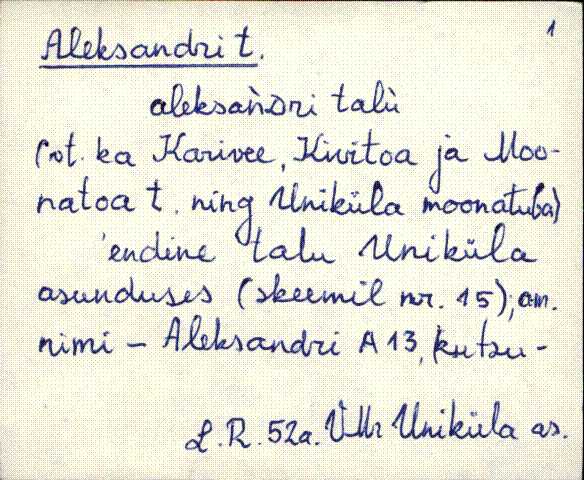 1
Aleksandri t.
aleksàǹdri talù
(vt. ka Karivee, Kivitoa ja Moo-
natoa t. ning Uniküla moonatuba)
'endine talu Uniküla
asunduses (skeemil nr. 15); am.
nimi – Aleksandri A 13, kutsu-
L. R. 52a. VMr Uniküla as.